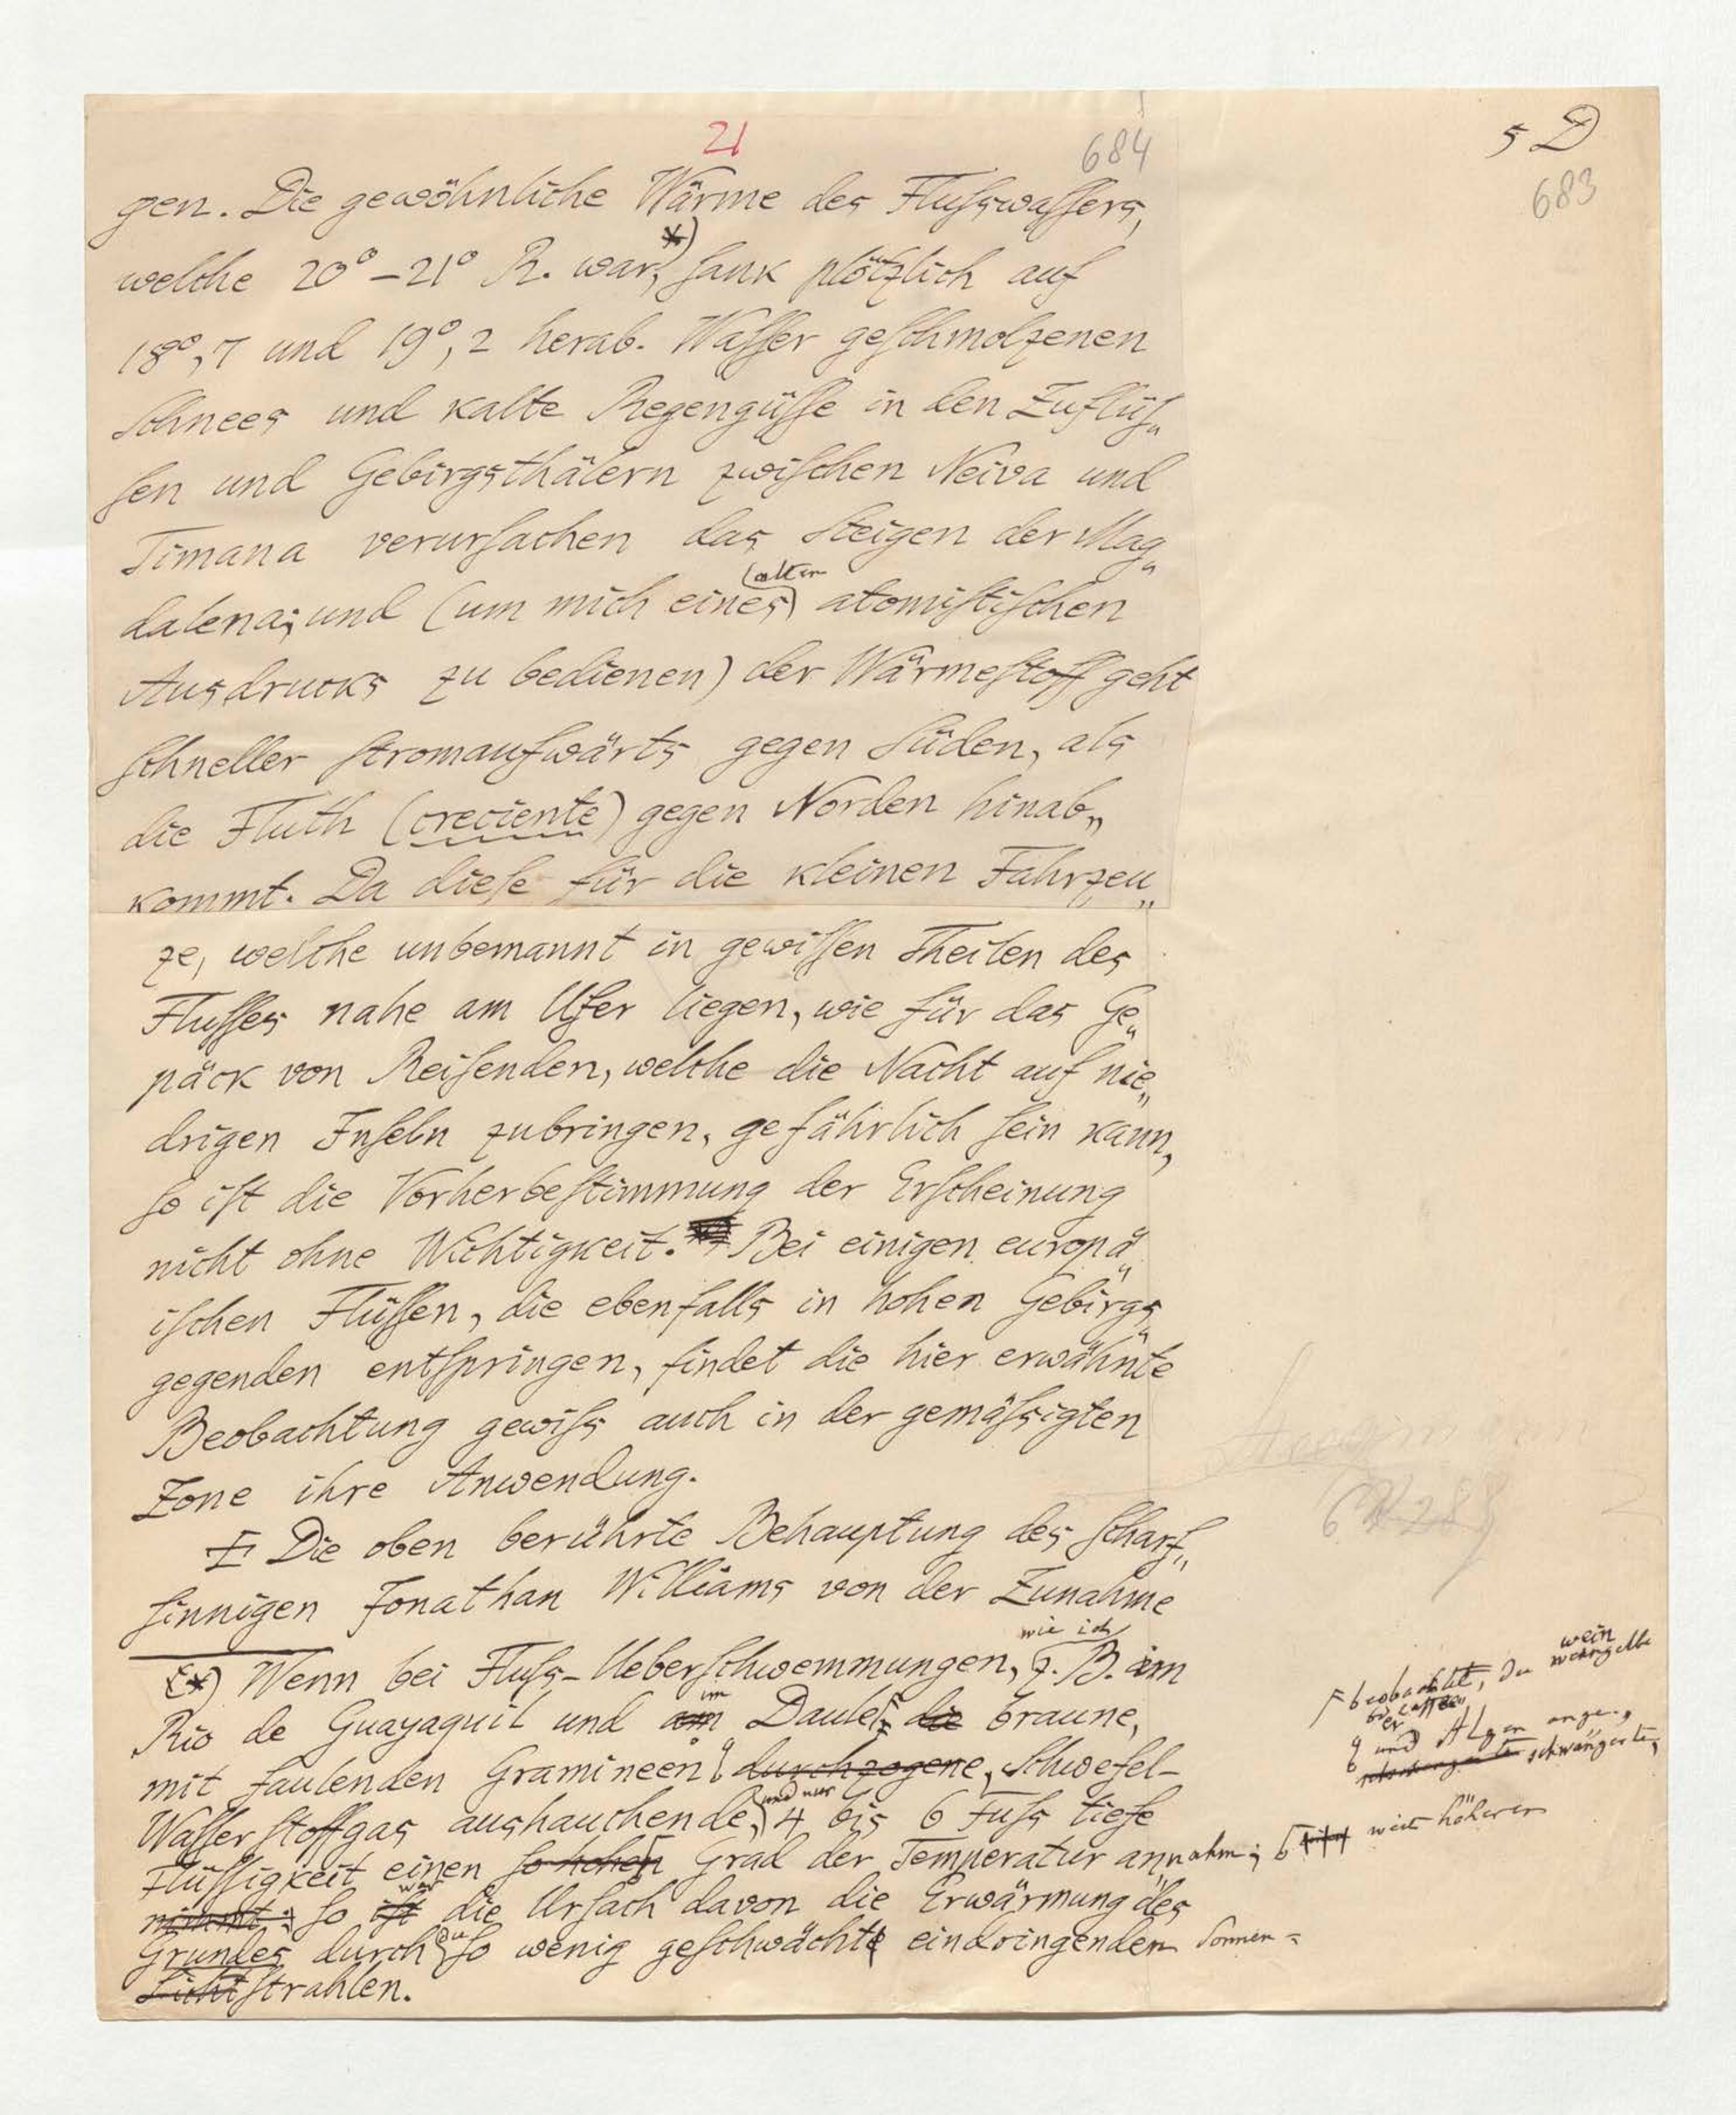 21
684
5 D
683
gen. Die gewöhnliche Wärme des Fluſswaſſers,
welche 20° – 21° R. war,*) ſank plötzlich auf
18°,7 und 19°,2 herab. Waſſer geſchmolzenen
Schnees und kalte Regengüſſe in den Zuflüſ„
ſen und Gebirgsthälern zwiſchen Neiva und
Timana verurſachen das Steigen der Mag„
dalena; und (um mich eines alten atomiſtiſchen
Ausdrucks zu bedienen) der Wärmeſtoff geht
ſchneller ſtromaufwärts gegen Süden, als
die Fluth (creciente) gegen Norden hinab„
kommt. Da dieſe für die kleinen Fahrzeu„
ge, welche unbemannt in gewiſſen Theilen des
Fluſſes nahe am Ufer liegen, wie für das Ge„
päck von Reiſenden, welche die Nacht auf nie„
drigen Inſeln zubringen, gefährlich ſein kann,
ſo iſt die Vorherbeſtimmung der Erſcheinung
nicht ohne Wichtigkeit. Bei einigen europä„
iſchen Flüſſen, die ebenfalls in hohen Gebirgs„
gegenden entſpringen, findet die hier erwähnte
Beobachtung gewiſs auch in der gemäſsigten
Zone ihre Anwendung.
Die oben berührte Behauptung des ſcharf„
ſinnigen Jonathan Williams von der Zunahme
*) Wenn bei Fluſs-Ueberſchwemmungen, wie ich z. B. im
Rio de Guayaquil und am im Daule, die braune,
mit faulenden Gramineen durchzogene, Schwefel-
Waſſerſtoffgas aushauchende, und nur 4 bis 6 Fuſs tiefe
Flüſſigkeit einen ſo hohen Grad der Temperatur annahm;
nimmt: ſo iſt war die Urſach davon die Erwärmung des
Grundes durch ſo wenig geſchwächt eindringenden Sonnen=
Lichtſtrahlen.
beobachtet, die
wein
und Algen ange„
schwängerte,
weit höheren